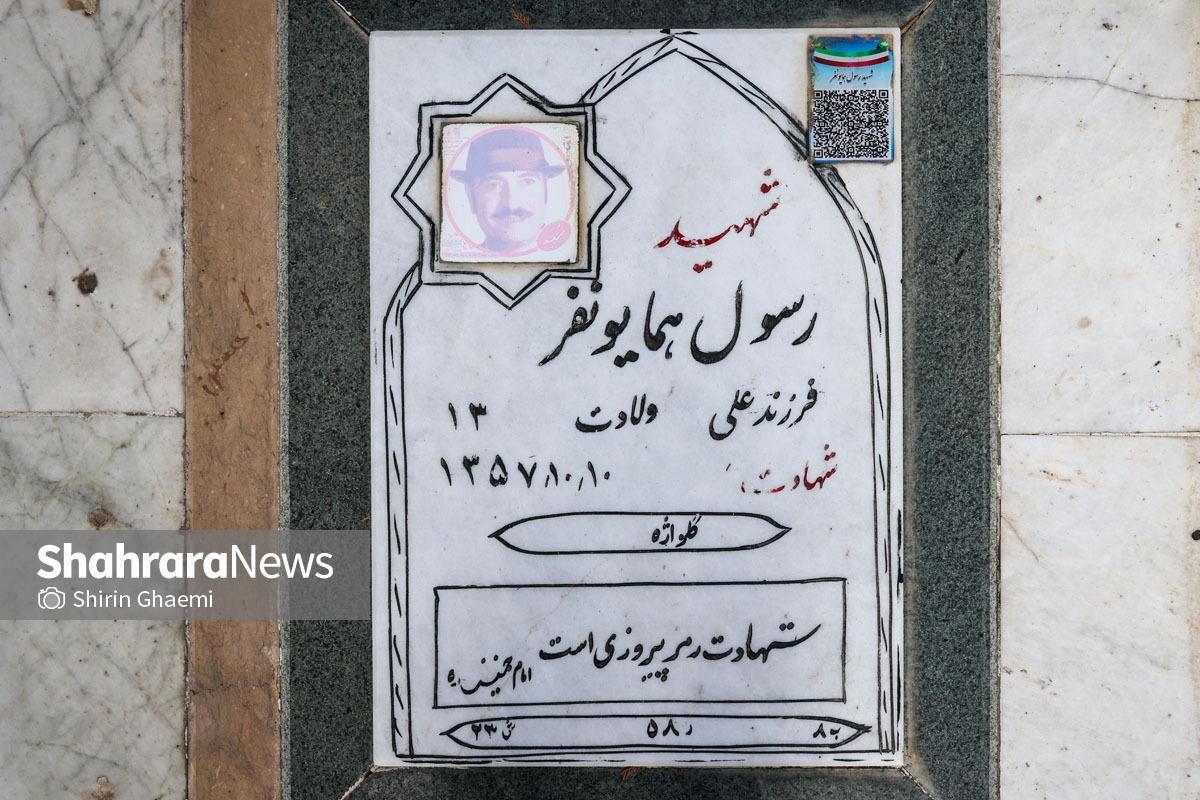 شهید رسول همایونفر
شهید
رسول همایونفر
فرزند علی ولادت ۱۳
شهادت ۱۳۵۷٫۱۰٫۱۰
گلواژه
شهادت رمز پیروزی است
امام خمینی ره
ب۸ ر ۵۸ ش ۲۳
ShahraraNews
Shirin Ghaemi